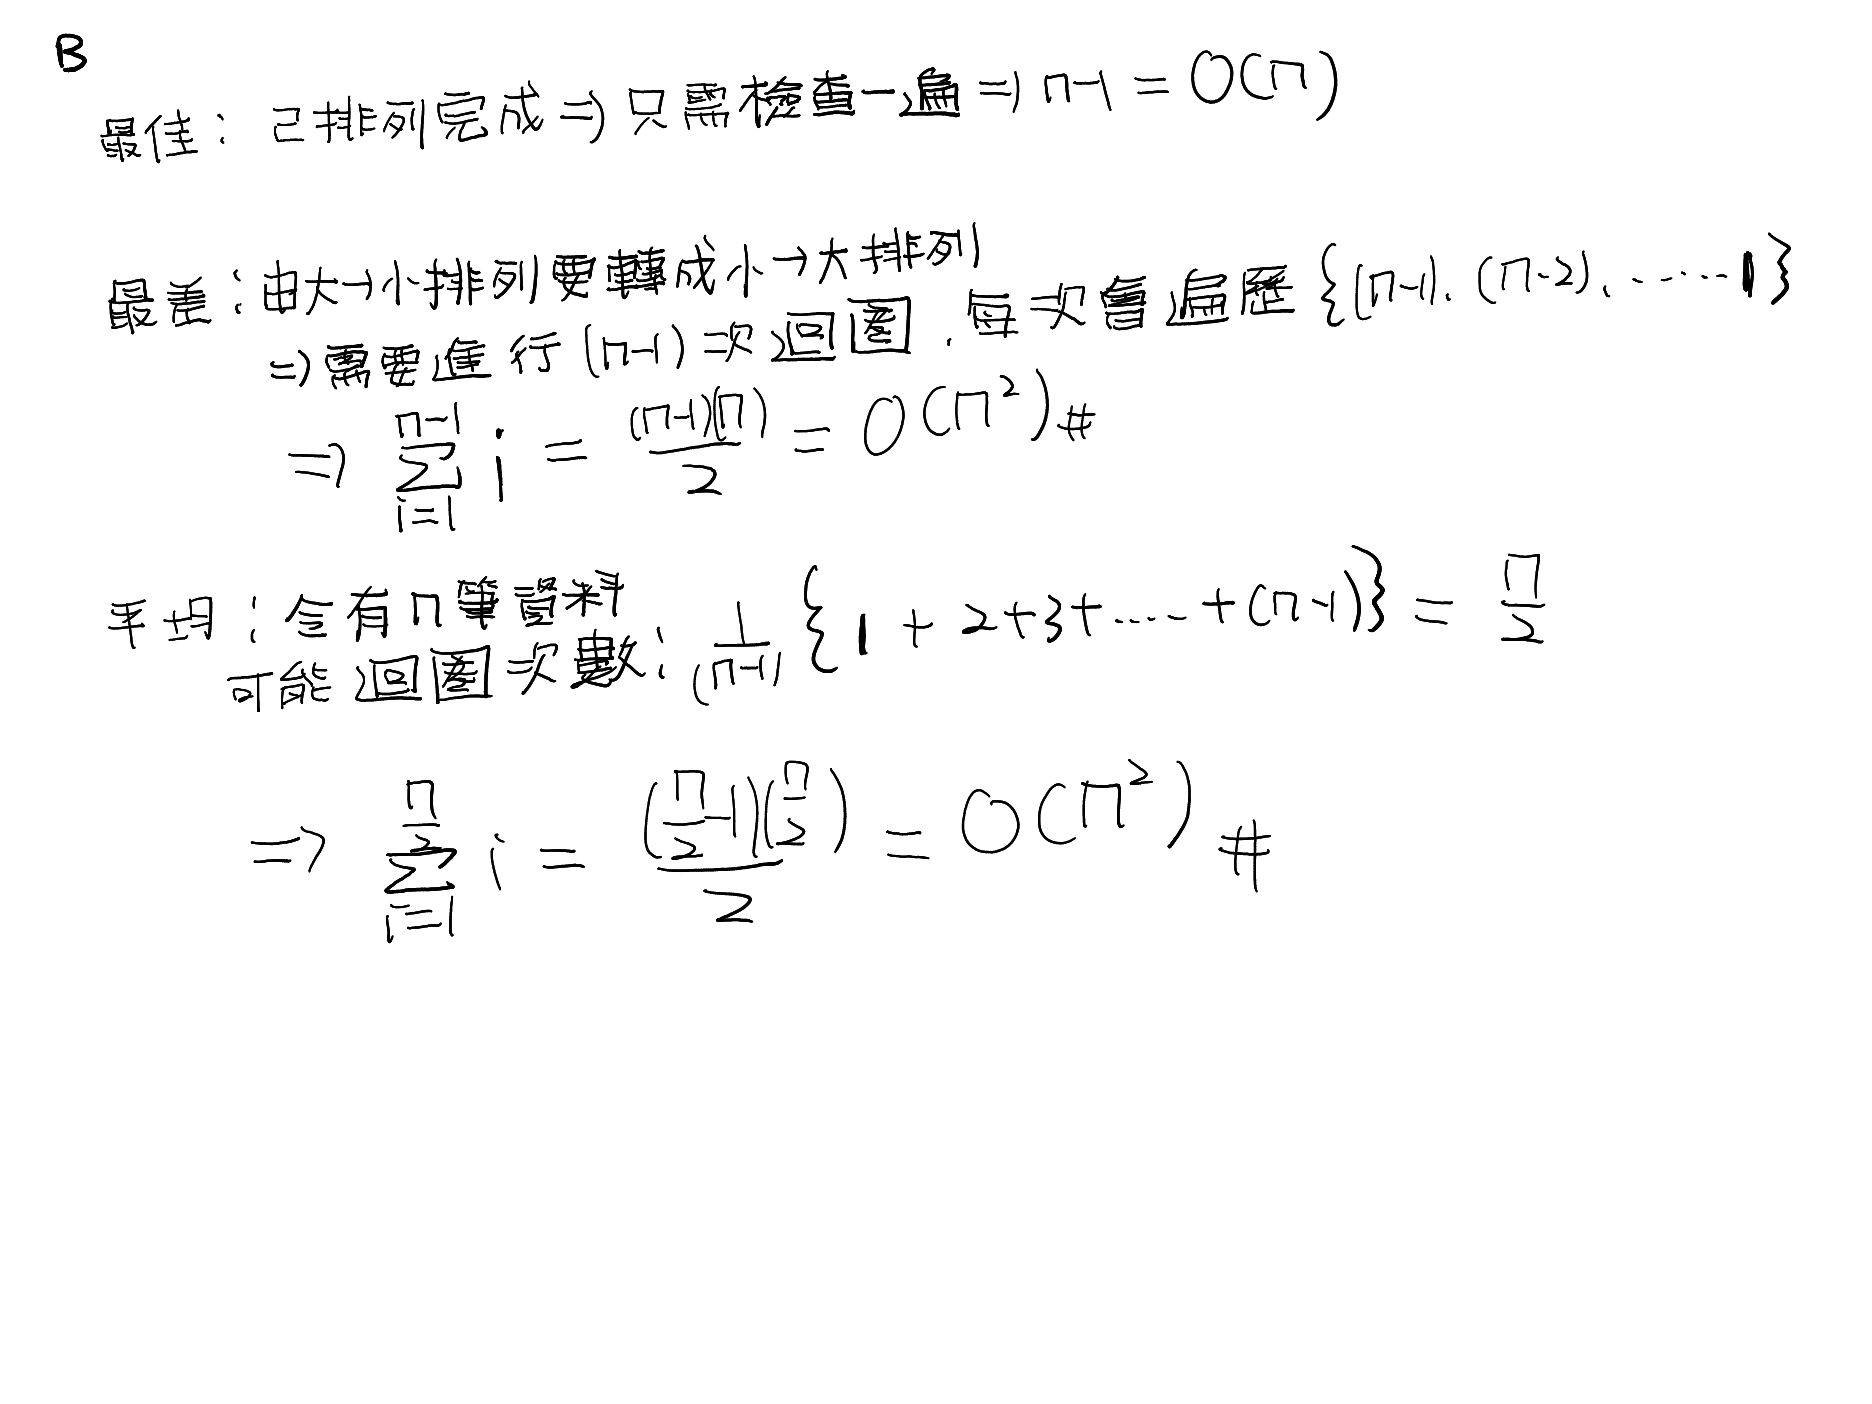 B
最佳：已排列完成 => 只需檢查一遍 => n-1 = O(n)
最差：由大→小排列要轉成小→大排列
=> 需要進行(n-1)次迴圈，每次會遍歷{(n-1), (n-2), ......1}
=> \sum_{i=1}^{n-1} i = \frac{(n-1)(n)}{2} = O(n²) #
平均：含有n筆資料
可能迴圈次數：\frac{1}{(n-1)} {1 + 2+3+.....+(n-1)} = \frac{n}{2}
=> \sum_{i=1}^{\frac{n}{2}} i = \frac{(\frac{n}{2}-1)(\frac{n}{2})}{2} = O(n²) #